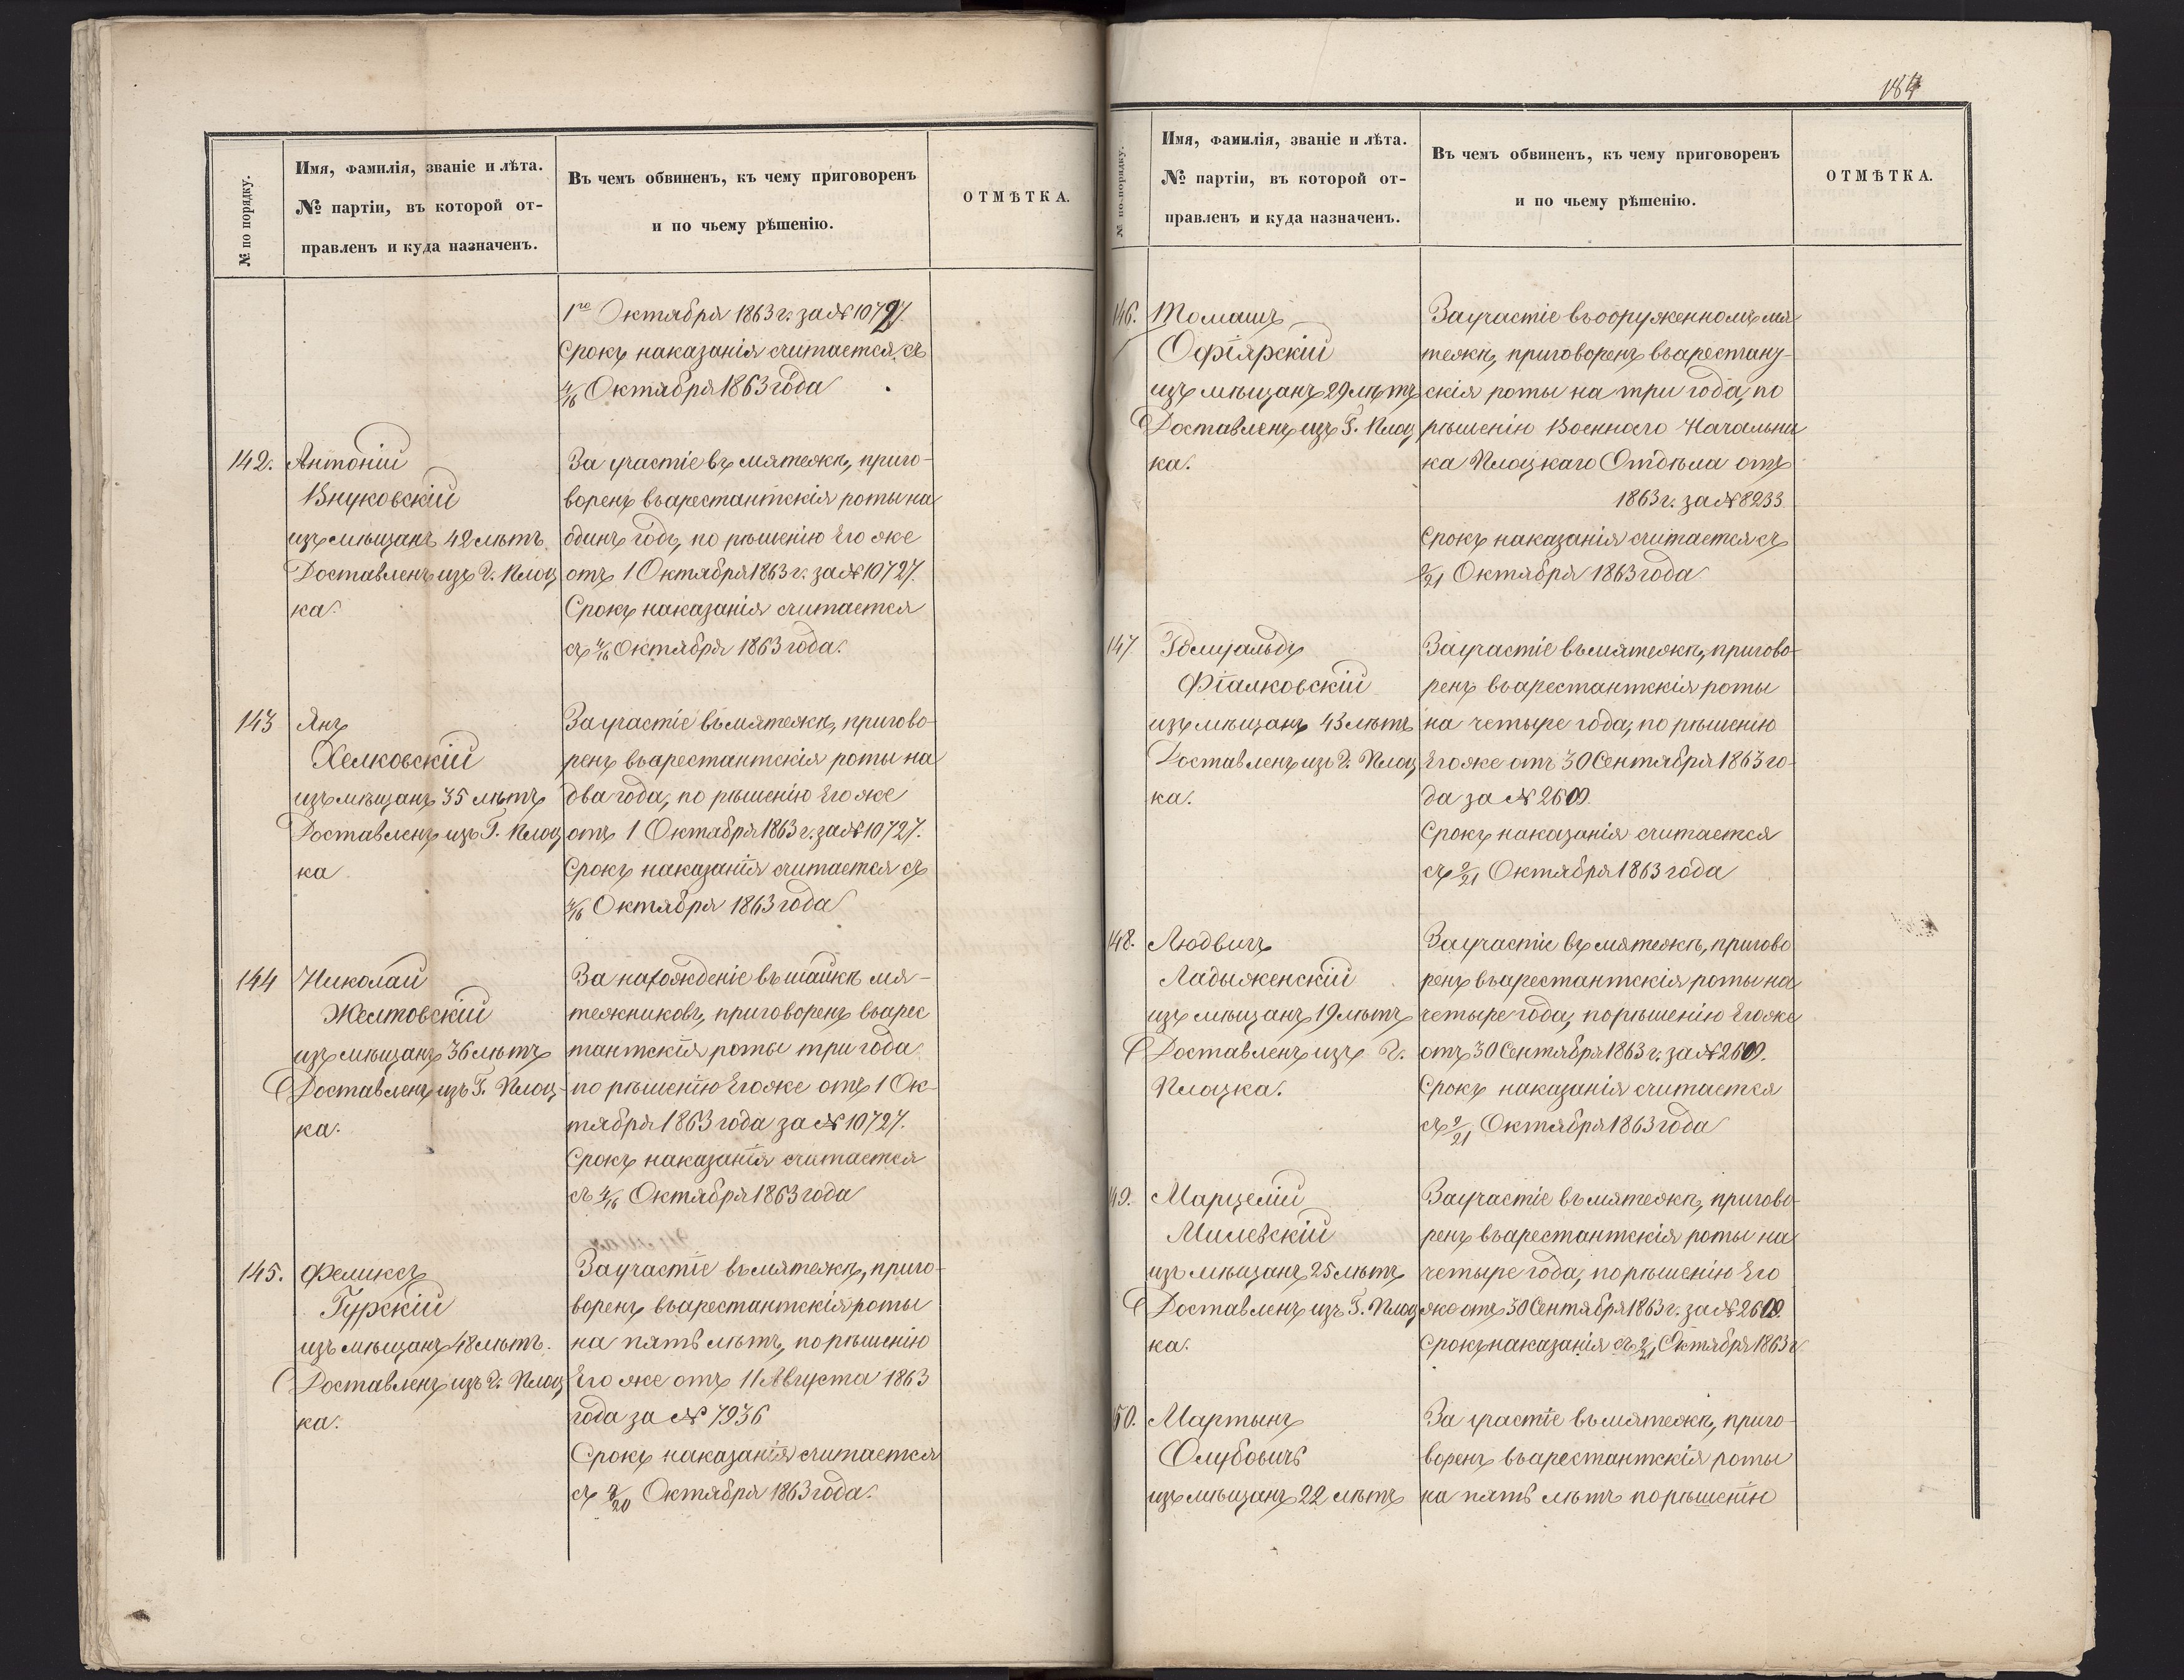 № по порядку.
Имя, фамилія, званіе и лѣта.
№ партіи, въ которой от-
правленъ и куда назначенъ.
Въ чемъ обвиненъ, къ чему приговоренъ
и по чьему рѣшенію.
ОТМѢТКА.
1го Октября 1863 г. за № 10727.
Срокъ наказанія считается съ
4/16 Октября 1863 года
142.
Антоній
Внуковскій
изъ мѣщанъ 42 лѣтъ
Доставленъ изъ Г. Плоц
ка.
За участіе въ мятежѣ, приго-
воренъ въ арестантскія роты на
одинъ годъ, по рѣшенію Его же
отъ 1 Октября 1863 г. за № 10727.
Срокъ наказанія считается
съ 4/16 Октября 1863 года.
143
Янъ
Хелковскій
изъ мѣщанъ 35 лѣтъ
Доставленъ изъ Г. Плоц
ка
За участіе въ мятежѣ, пригово-
ренъ въ арестантскія роты на
два года, по рѣшенію Его же
отъ 1 Октября 1863 г. за № 10727.
Срокъ наказанія считается съ
4/16 Октября 1863 года
144
Николай
Желтовскій
изъ мѣщанъ 36 лѣтъ
Доставленъ изъ Г. Плоц-
ка.
За нахожденіе въ шайкѣ мя-
тежниковъ, приговоренъ въ арес
тантскія роты три года
по рѣшенію Его же отъ 1 Ок-
тября 1863 года за № 10727.
Срокъ наказанія считается
съ 4/16 Октября 1863 года
145.
Феликсъ
Гурскій
изъ мѣщанъ 48 лѣтъ.
Доставленъ изъ Г. Плоц
ка.
За участіе въ мятежѣ, приго-
воренъ въ арестантскія роты
на пять лѣтъ, по рѣшенію
Его же отъ 11 Августа 1863
года за № 7936
Срокъ наказанія считается
съ 8/20 Октября 1863 года.
184
№ по порядку.
Имя, фамилія, званіе и лѣта.
№ партіи, въ которой от-
правленъ и куда назначенъ.
Въ чемъ обвиненъ, къ чему приговоренъ
и по чьему рѣшенію.
ОТМѢТКА.
146.
Томашъ
Офіярскій
изъ мѣщанъ 29 лѣтъ
Доставленъ изъ Г. Плоц
ка.
За участіе въ вооруженномъ мя
тежѣ, приговоренъ въ арестант-
скія роты на три года, по
рѣшенію Военнаго Начальни
ка Плоцкаго Отдѣла отъ
1863 г. за № 8233
Срокъ наказанія считается съ
9/21 Октября 1863 года
147
Ромуальдъ
Фіалковскій
изъ мѣщанъ 43 лѣтъ
Доставленъ изъ Г. Плоц
ка.
За участіе въ мятежѣ, пригово-
ренъ въ арестантскія роты
на четыре года, по рѣшенію
Его же отъ 30 Сентября 1863 го-
да за №
Срокъ наказанія считается
съ 9/21 Октября 1863 года
148.
Людвигъ
Ладыженскій
изъ мѣщанъ 19 лѣтъ
Доставленъ изъ Г.
Плоцка.
За участіе въ мятежѣ, пригово
ренъ въ арестантскія роты на
четыре года, по рѣшенію Его же
отъ 30 Сентября 1863 г. за №
Срокъ наказанія считается
съ 9/21 Октября 1863 года
49.
Марцелій
Милевскій
изъ мѣщанъ 25 лѣтъ
Доставленъ изъ Г. Плоц
ка.
За участіе въ мятежѣ, пригово-
ренъ въ арестантскія роты на
четыре года, по рѣшенію Его
же отъ 30 Сентября 1863 г. за №
Срокъ наказанія съ 9/21 Октября 1863 г.
50.
Мартынъ
Олубовичъ
изъ мѣщанъ 22 лѣтъ
За участіе въ мятежѣ, приго-
воренъ въ арестантскія роты
на пять лѣтъ по рѣшенію